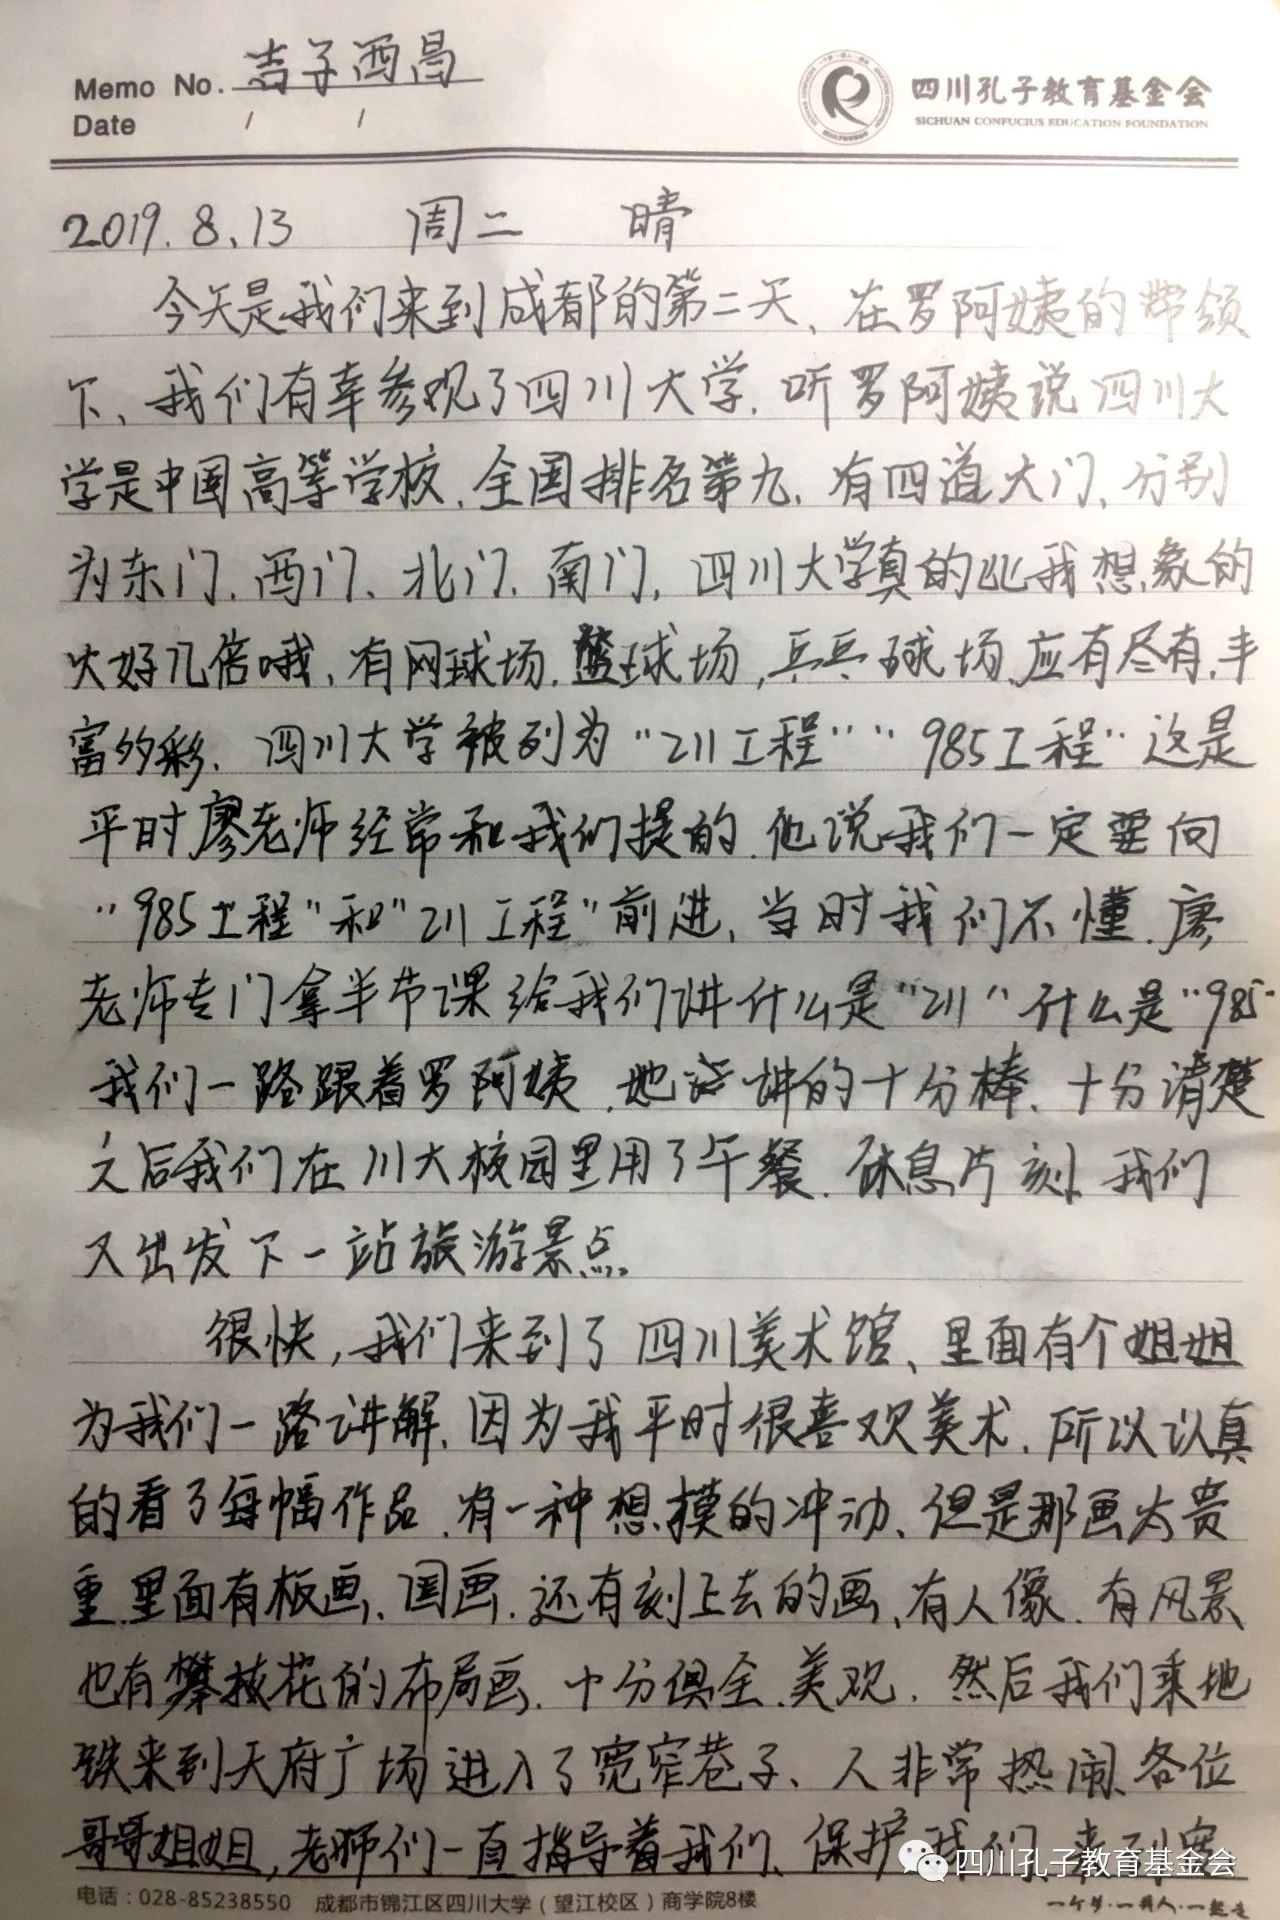 Memo No. 吉子西昌
Date / /
四川孔子教育基金会
SICHUAN CONFUCIUS EDUCATION FOUNDATION
2019.8.13 周二 晴
今天是我们来到成都的第二天、在罗阿姨的带领
下、我们有幸参观了四川大学.听罗阿姨说四川大
学是中国高等学校.全国排名第九.有四道大门、分别
为东门.西门、北门.南门,四川大学真的比我想象的
大好几倍哦、有网球场.篮球场,乒乓球场.应有尽有.丰
富多彩.四川大学被列为“211工程”“985工程”这是
平时廖老师经常和我们提的.他说我们一定要向
“985工程”和“211工程”前进、当时我们不懂.廖
老师专门拿半节课给我们讲什么是“211”什么是“985”
我们一路跟着罗阿姨.她讲的十分棒、十分清楚
之后我们在川大校园里用了午餐.休息片刻.我们
又出发下一站旅游景点.
很快,我们来到了四川美术馆、里面有个姐姐
为我们一路讲解.因为我平时很喜欢美术.所以认真
的看了每幅作品.有一种想摸的冲动、但是那画太贵
重.里面有板画、国画.还有刻上去的画、有人像.有风景、
也有攀枝花的布局画.十分俱全.美观.然后我们乘地
铁来到天府广场进入了宽窄巷子、人非常热闹.各位
哥哥姐姐,老师们一直指导着我们、保护我们.来到
电话:028-85238550 成都市锦江区四川大学(望江校区)商学院8楼
四川孔子教育基金会
一个梦·一群人·一起走